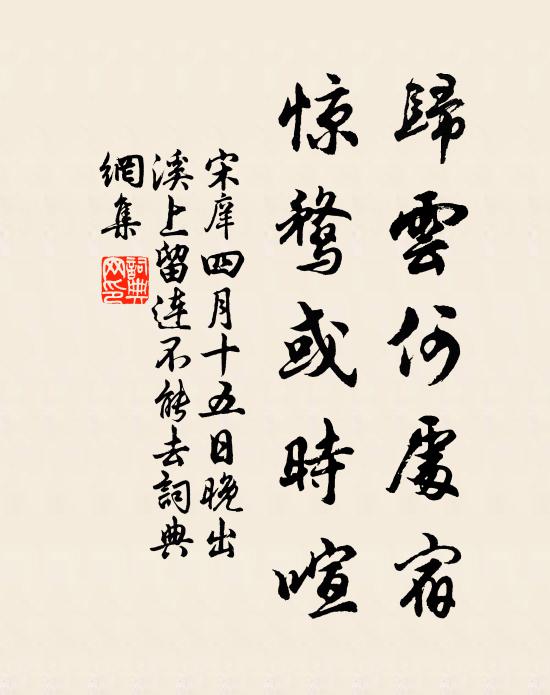 歸雲何處宿
惊鶩或時喧
宋庠四月十五日晚出
溪上留连不能去詞典
網集
詞典网印